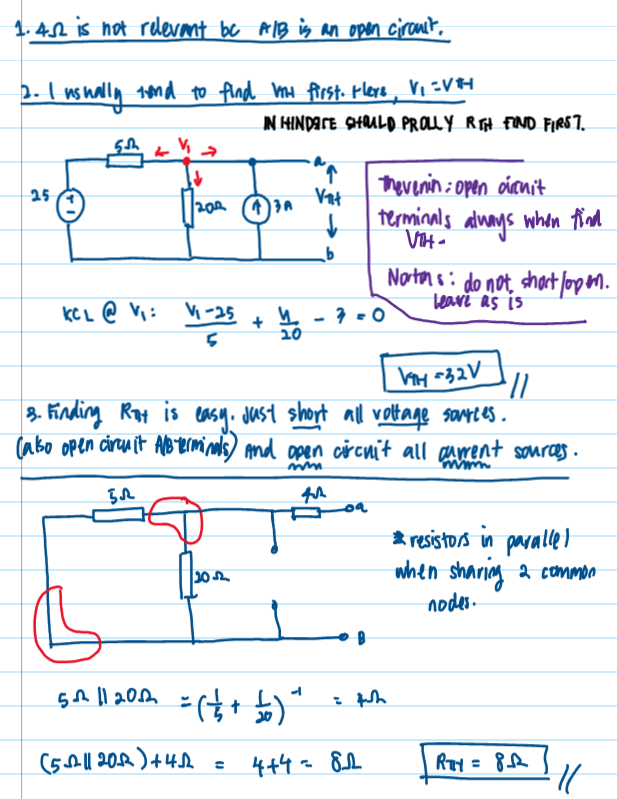 1. 4Ω is not relevant bc A/B is an open circuit.
2. I usually tend to find VTH first. Here, V1 = VTH
IN HINDSITE SHOULD PROLLY RTH FIND FIRST.
5Ω
V1
a
25
20Ω
3A
VTH
b
Thevenin: open circuit
terminals always when find
VTH.
Nortons: do not short/open.
leave as is
KCL @ V1: V1-25/5 + V1/20 - 3 = 0
VTH = 32V //
3. Finding RTH is easy. Just short all voltage sources.
(also open circuit A/B terminals) And open circuit all current sources.
5Ω
4Ω
a
20Ω
B
2 resistors in parallel
when sharing 2 common
nodes.
5Ω || 20Ω = (1/5 + 1/20)^-1 = 4Ω
(5Ω || 20Ω) + 4Ω = 4+4 = 8Ω
RTH = 8Ω //